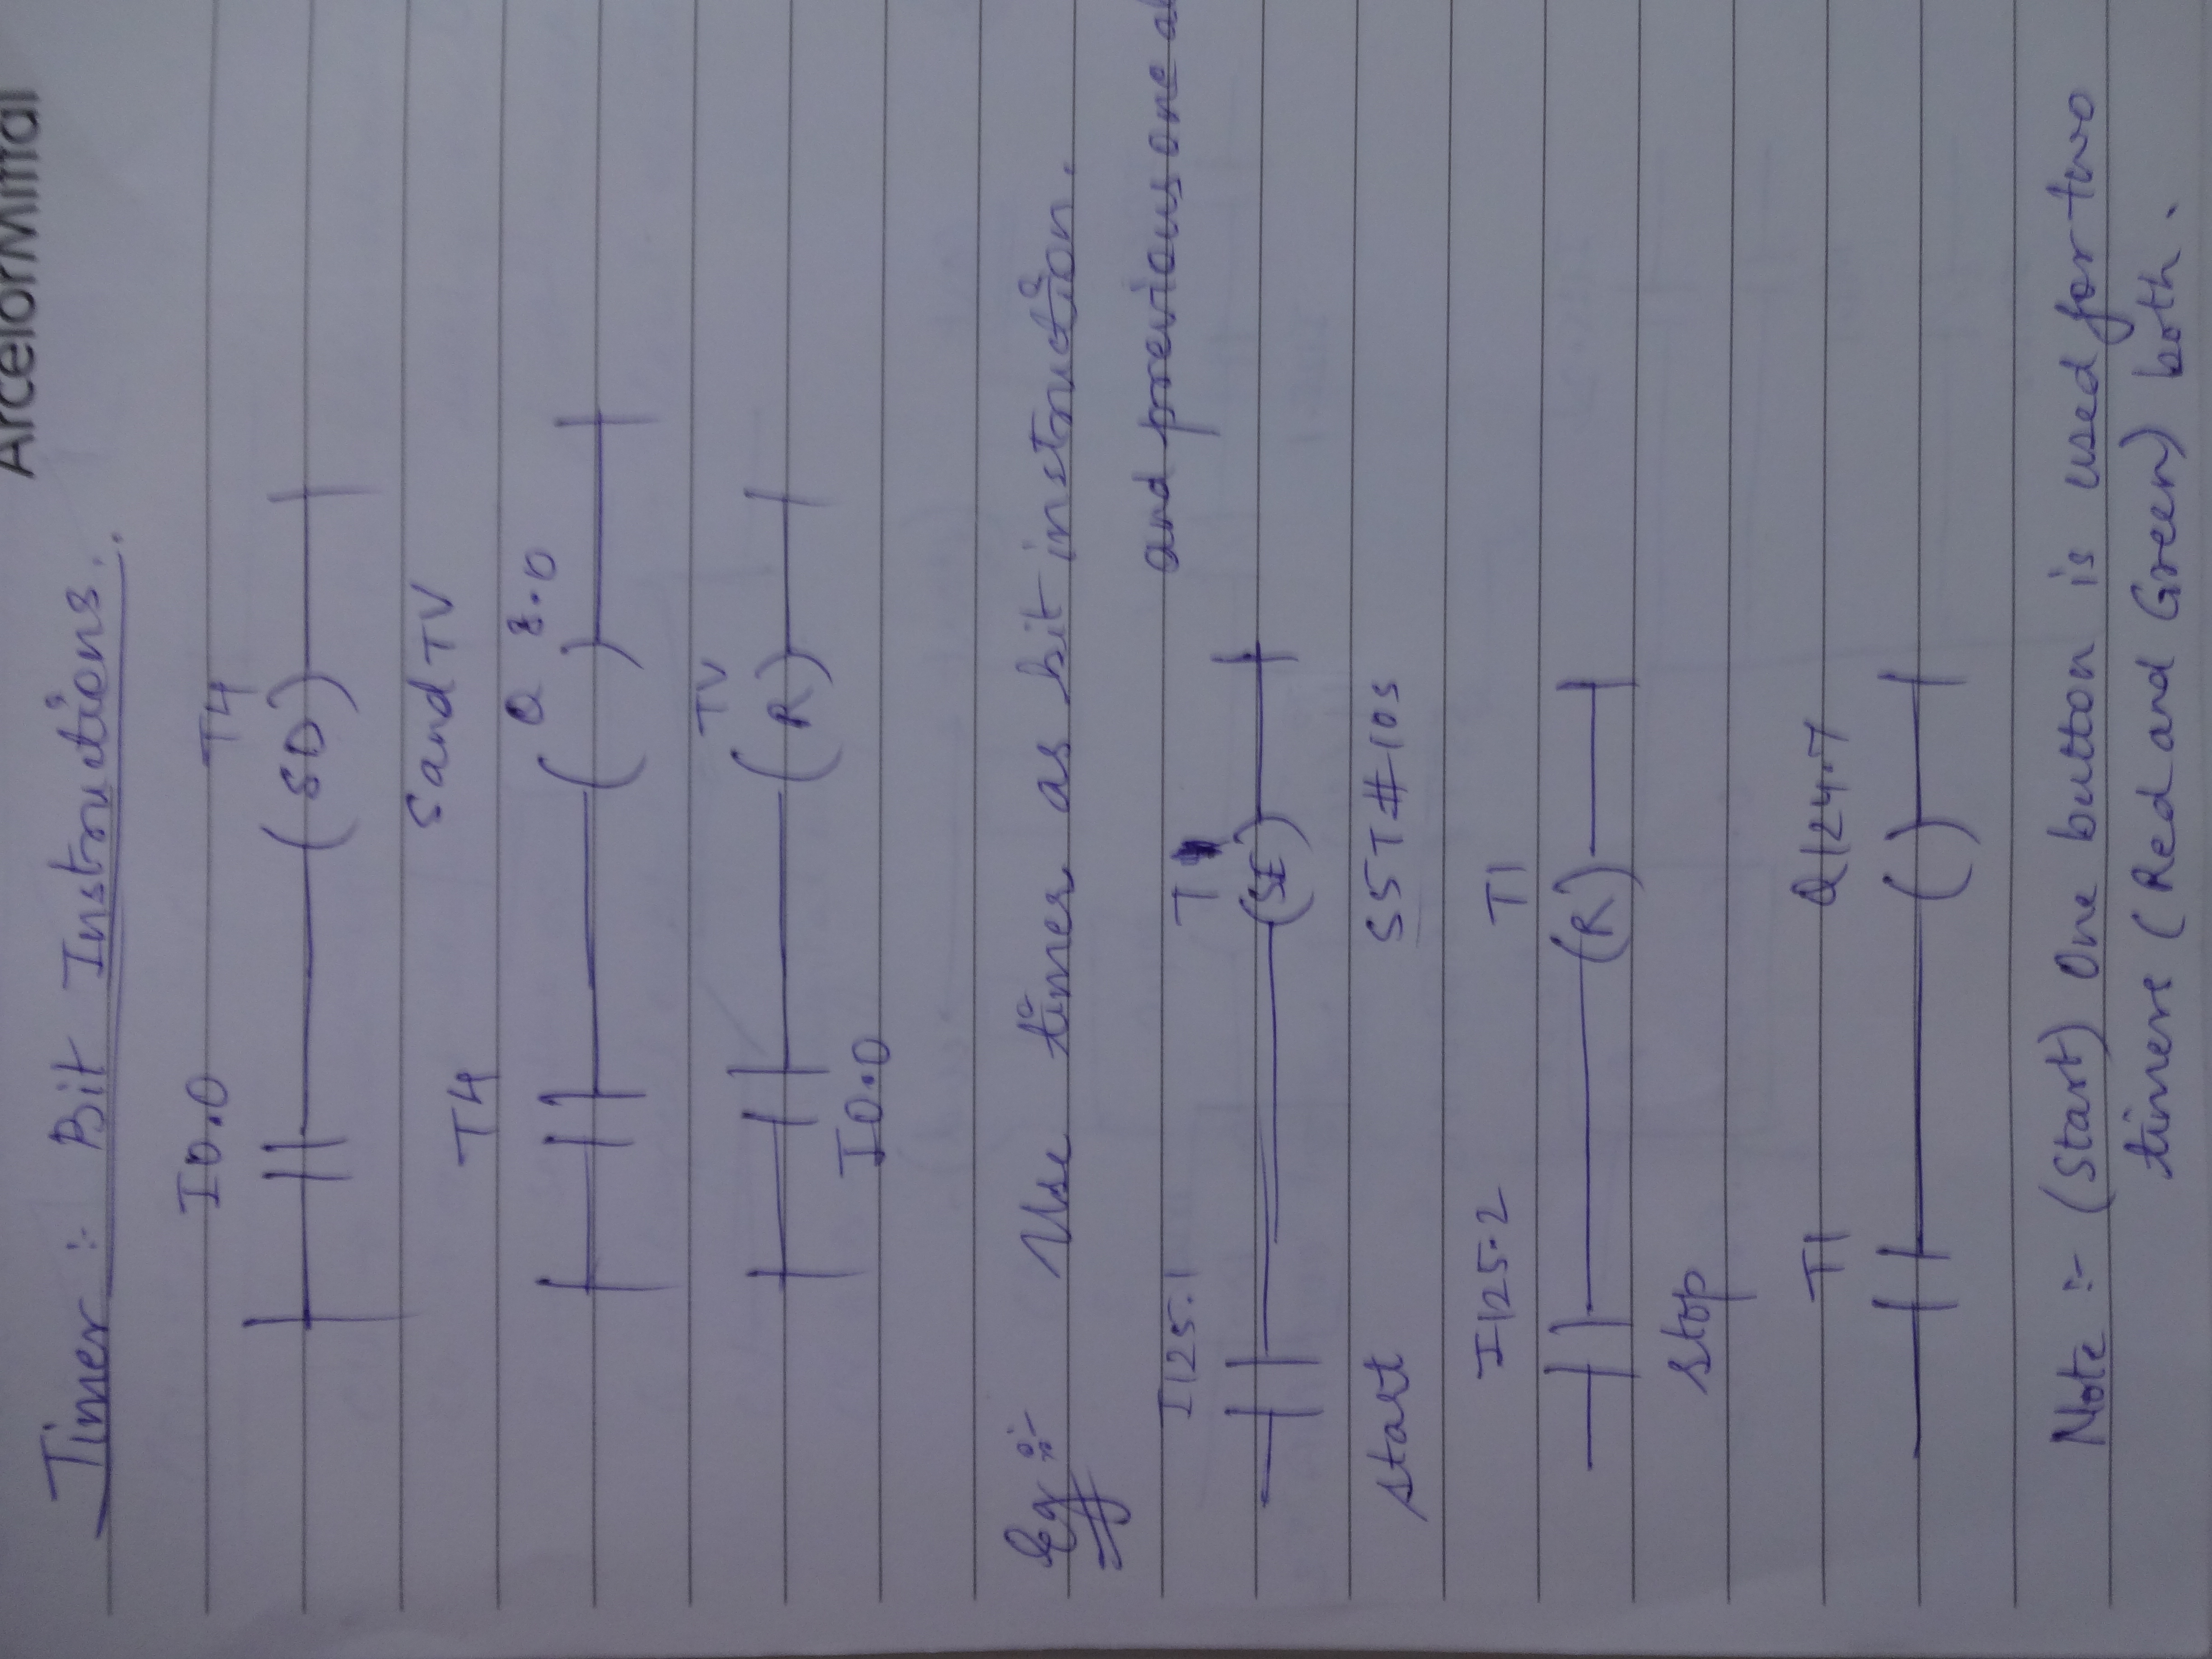 ArcelorMittal
Timer :- Bit Instructions :
I0.0 T4
(SD)
S and TV
T4 Q 8.0
( )
TV
(R)
I0.0
Eg :- Use timer as bit instruction.
and previous one
I125.1 T
(SE)
start S5T#10s
I125.2 T1
(R)
stop
T1 Q124.7
( )
Note :- (Start) One button is used for two
timers (Red and Green) both.